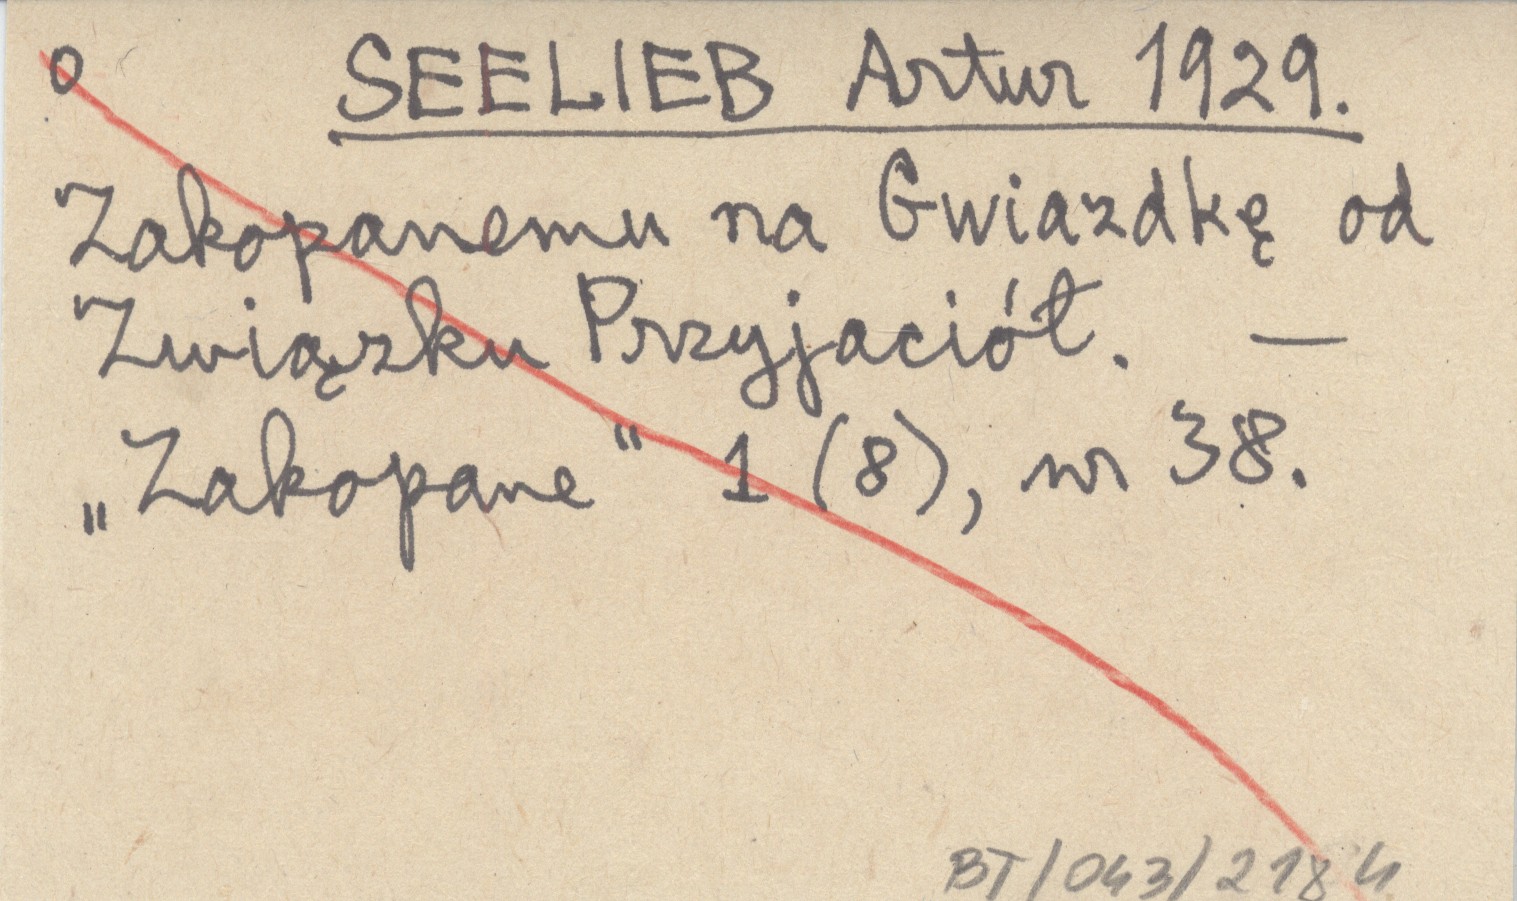 o SEELIEB Artur 1929.
Zakopanemu na Gwiazdkę od
Związku Przyjaciół. —
„Zakopane“ 1 (8), nr 38.
BT/043/2184